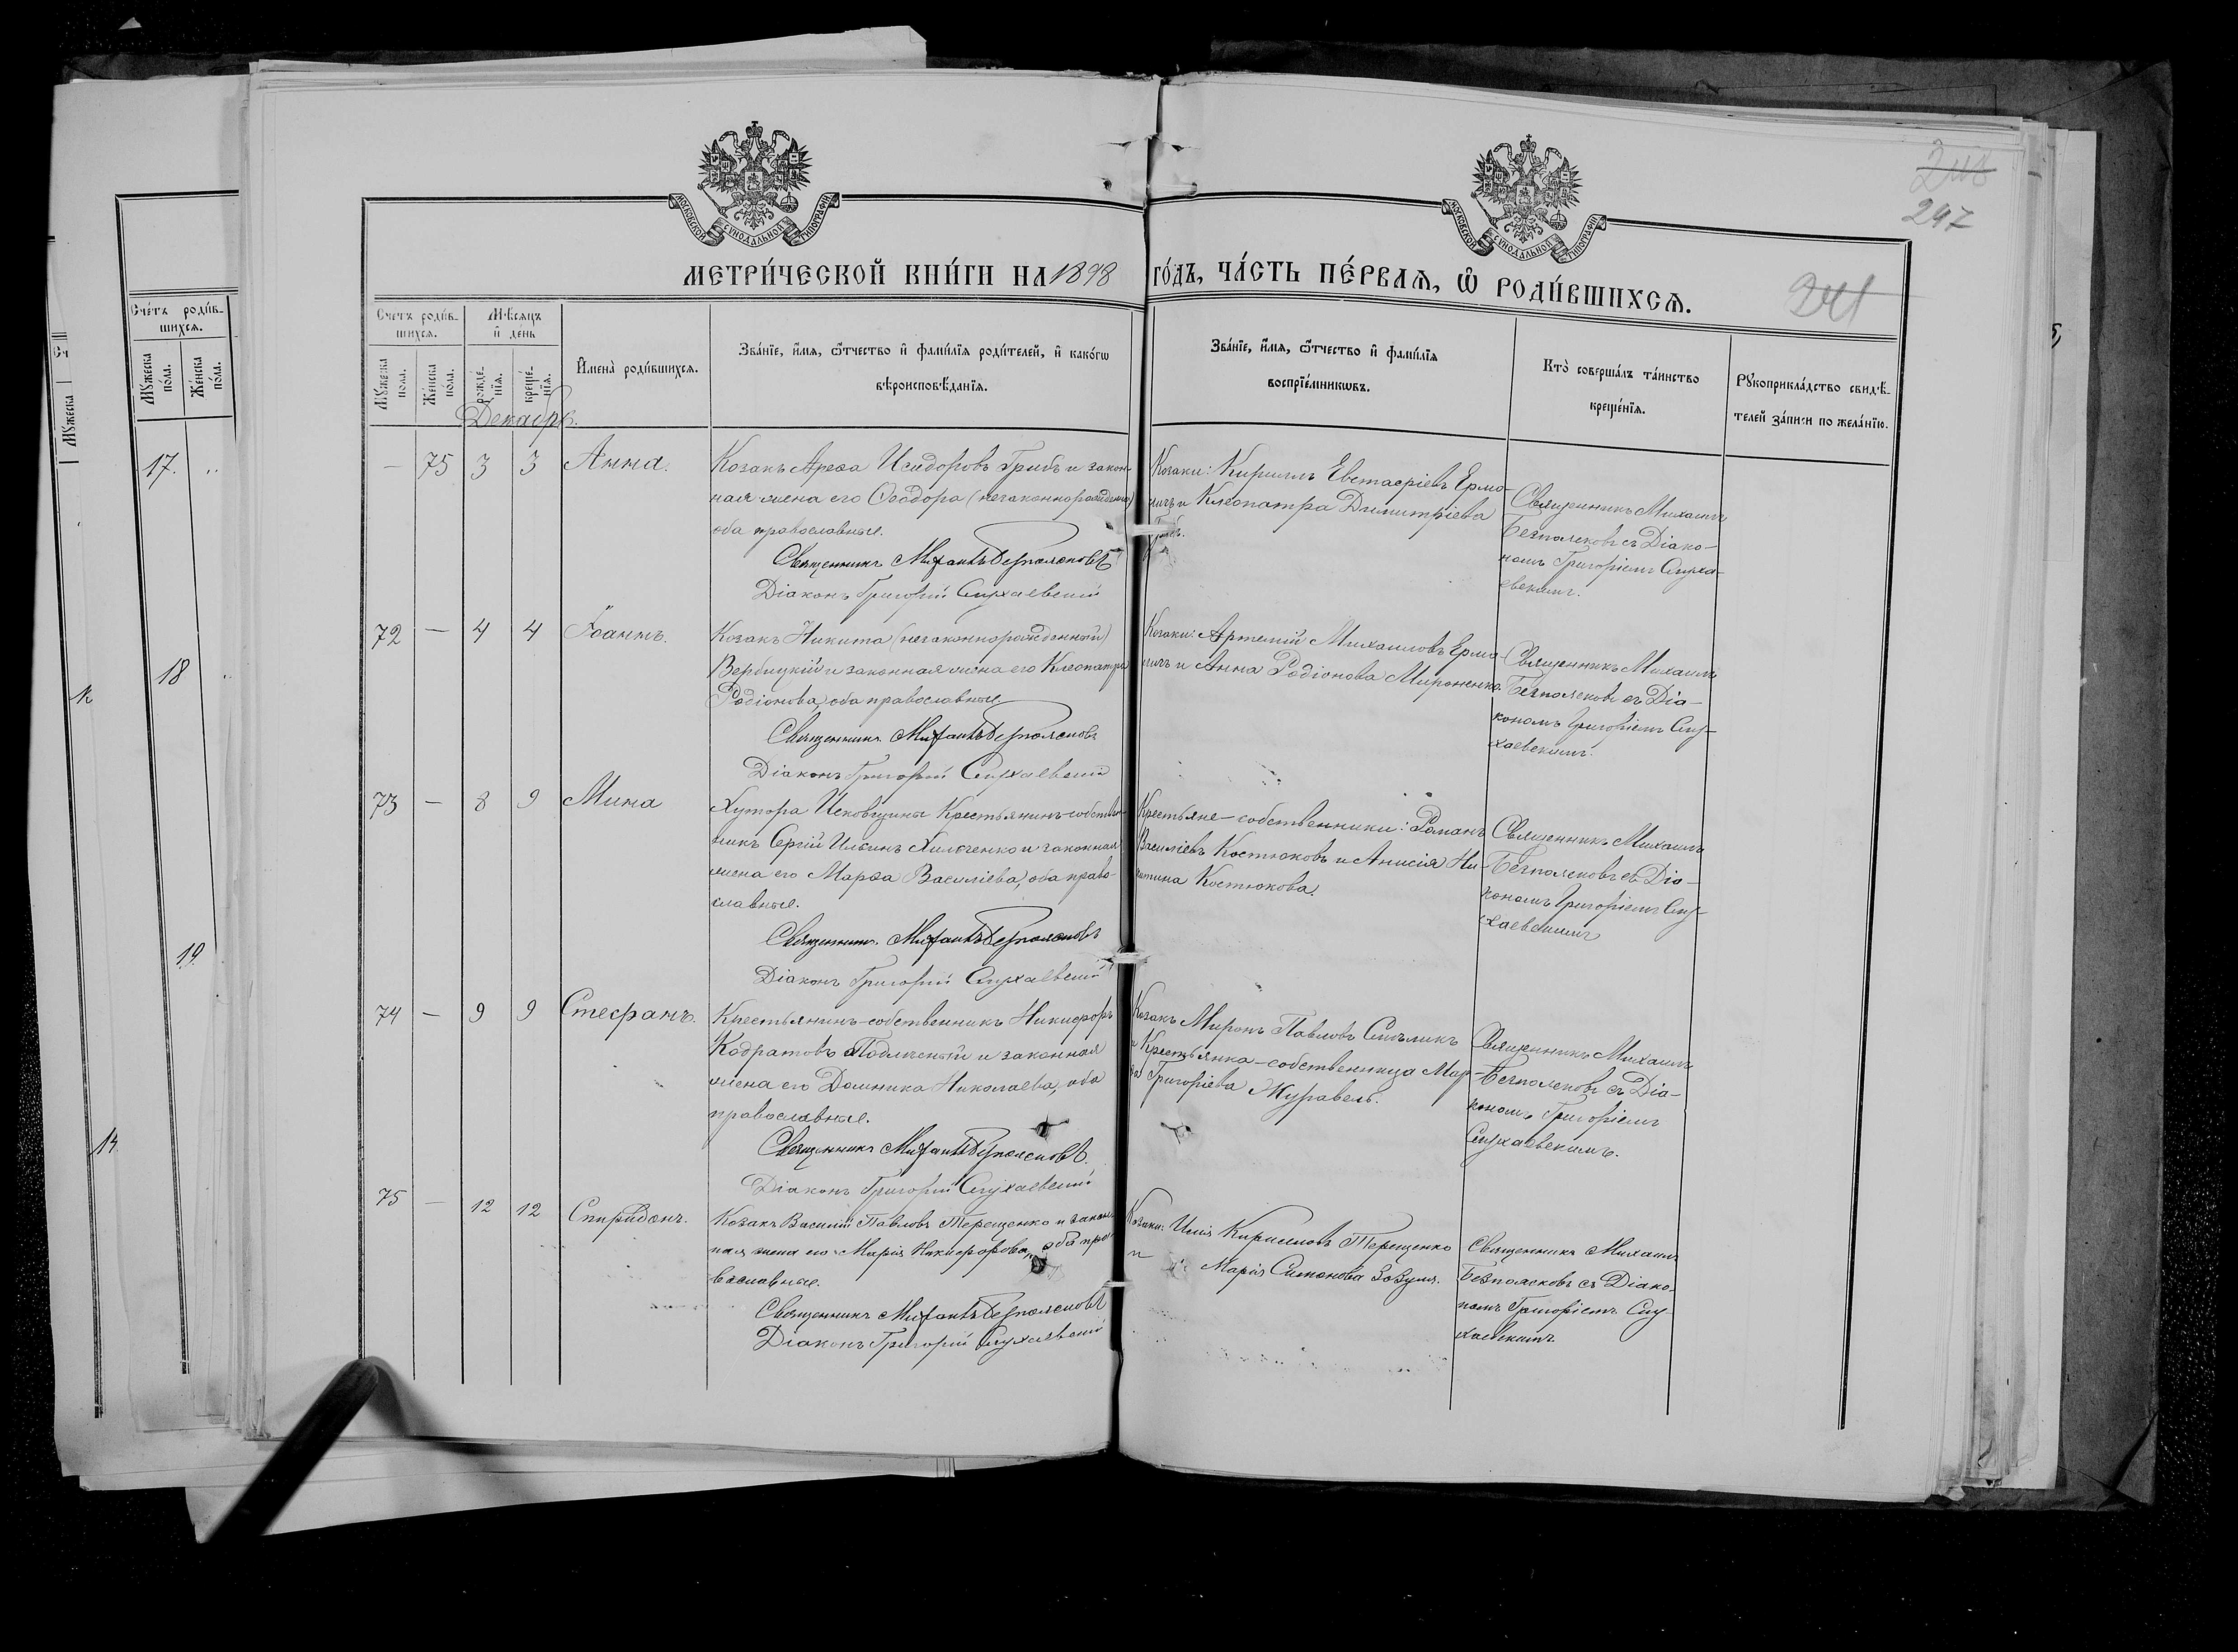 МОСКОВСКОЙ СУНОДАЛЬНОЙ ТИПОГРАФІИ
МОСКОВСКОЙ СУНОДАЛЬНОЙ ТИПОГРАФІИ
297
МЕТРИ́ЧЕСКОЙ КНИ́ГИ НА 1898 ГО́ДЪ, ЧА́СТЬ ПЕ́РВАѦ, Ѡ҆ РОДИ́ВШИХСѦ.
Сче́тъ роди́в-
шихсѧ.
Мꙋ́жеска
по́ла.
Же́нска
по́ла.
Счетъ роди́в-
шихсѧ.
Мѣ́сѧцъ
и҆ де́нь
Мꙋ́жеска
по́ла.
Же́нска
по́ла.
рожде́-
нїѧ.
креще́-
нїѧ.
И҆мена̀ роди́вшихсѧ.
Зва́нїе, и҆́мѧ, ѻ҆́тчество и҆ фами́лїѧ роди́телей, и҆ како́гѡ
вѣроисповѣ́данїѧ.
Зва́нїе, и҆́мѧ, ѻ҆́тчество и҆ фами́лїѧ
воспрїе́мникѡвъ.
Кто̀ соверша́лъ та́инство
креще́нїѧ.
Рꙋкоприкла́дство свидѣ́-
телей за́писи по жела́нїю.
Декабрь.
17.
18
19
14
— 75 3 3 Анна.
Козакъ Ареѳа Исидоровъ Грибъ и закон-
ная жена его Ѳеодора (незаконнорожденная)
оба православные.
Священникъ Михаилъ Безпалековъ
Діаконъ Григорій Слухаевскій
Козаки: Кириллъ Евстафіевъ Ермо-
ничъ и Клеопатра Димитріева
Священникъ Михаилъ
Безпалековъ съ Діако-
номъ Григоріемъ Слуха-
евскимъ.
72 — 4 4 Іоаннъ.
Козакъ Никита (незаконнорожденный)
Вербицкій и законная жена его Клеопатра
Родіонова, оба православные
Священникъ Михаилъ Безпалековъ
Діаконъ Григорій Слухаевскій
Козаки: Артемій Михаиловъ Ермо-
ничъ и Анна Родіонова Мироненко.
Священникъ Михаилъ
Безпалековъ съ Діа-
кономъ Григоріемъ Слу-
хаевскимъ.
73 — 8 9 Мина
Хутора Исковщины Крестьянинъ-собствен-
никъ Сергій Ильинъ Хильченко и законная
жена его Марѳа Василіева, оба право-
славные.
Священникъ Михаилъ Безпалековъ
Діаконъ Григорій Слухаевскій
Крестьяне-собственники: Романъ
Василіевъ Костюковъ и Анисія Ни-
китина Костюкова.
Священникъ Михаилъ
Безпалековъ съ Діа-
кономъ Григоріемъ Слу-
хаевскимъ
74 — 9 9 Стефанъ.
Крестьянинъ-собственникъ Никифоръ
Кодратовъ и законная
жена его Домника Николаева, оба
православные.
Священникъ Михаилъ Безпалековъ.
Діаконъ Григорій Слухаевскій
Козакъ Миронъ Павловъ Смѣликъ
и Крестьянка-собственница Мар-
ѳа Григоріева Журавель.
Священникъ Михаилъ
Безпалековъ съ Діа-
кономъ Григоріемъ
Слухаевскимъ.
75 — 12 12 Спиридонъ.
Козакъ Василій Павловъ Терещенко и закон-
ная жена его Марія Никифорова, оба пра-
вославные.
Священникъ Михаилъ Безпалековъ
Діаконъ Григорій Слухаевскій
Козаки: Илія Кирилловъ Терещенко
и Марія Симонова Зозуля.
Священникъ Михаилъ
Безпалековъ съ Діако-
номъ Григоріемъ Слу-
хаевскимъ